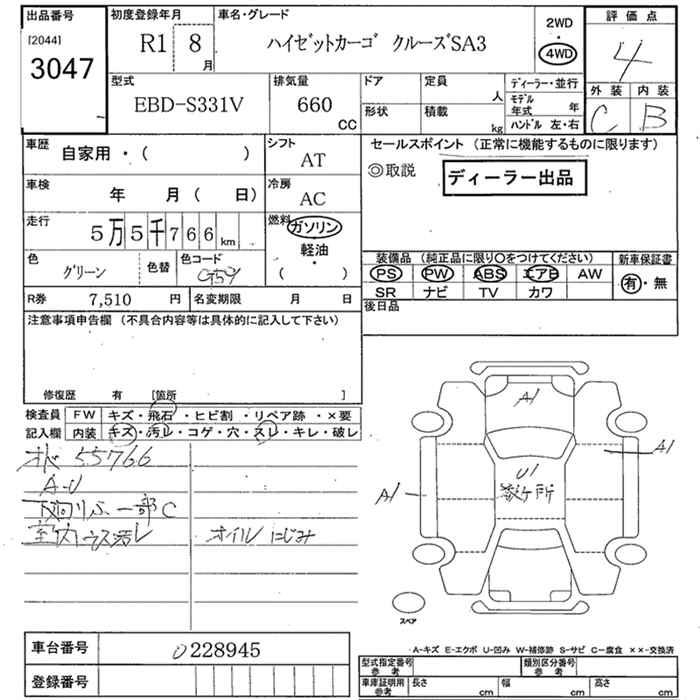 出品番号 初度登録年月 車名・グレード 2WD ・ 4WD 評価点
[2044] 3047 R1 8月 ハイゼットカーゴ クルーズSA3 4
型式 排気量 ドア 定員 人 ディーラー・並行 外装 内装
EBD-S331V 660 CC 形状 積載 kg モデル年式 年 ハンドル 左・右 C B
車歴 自家用・( ) シフト AT セールスポイント (正常に機能するものに限ります)
◎取説 ディーラー出品
車検 年 月( 日) 冷房 AC
走行 5万5千766km 燃料 ガソリン・軽油・( )
色 グリーン 色替 色コード G59
装備品 (純正品に限り○をつけてください) 新車保証書
PS PW ABS エアB AW 有・無
SR ナビ TV カワ
R券 7,510円 名変期限 月 日 後日品
注意事項申告欄 (不具合内容等は具体的に記入して下さい)
修復歴 有 [箇所 ]
検査員 FW キズ・飛石・ヒビ割・リペア跡・×要
記入欄 内装 キズ・汚レ・コゲ・穴・スレ・キレ・破レ
55766
A-U
一部C
オイルにじみ
A1
A1
U1
数ヶ所
A1
スペア
車台番号 0228945
登録番号
A-キズ E-エクボ U-凹み W-補修跡 S-サビ C-腐食 ××-交換済
型式指定番号 参考 類別区分番号 参考
車庫証明用 参考 長さ cm 幅 cm 高さ cm